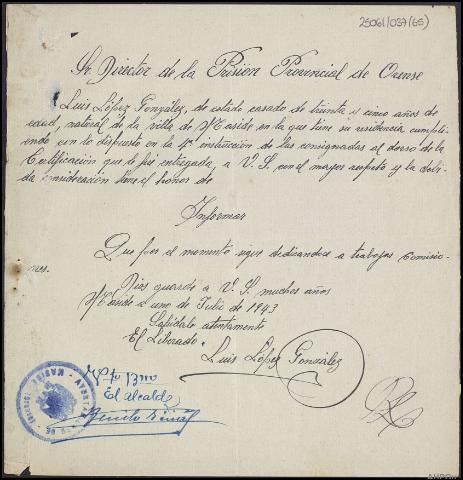 25061/037(65)
Sr. Director de la Prisión Provincial de Orense
Luis López González, de estado casado de treinta y cinco años de
edad, natural de la villa de Maside en la que tiene su residencia cumpli-
endo con lo dispuesto en la 4ª instrucción de las consignadas al dorso de la
Certificación que le fué entregada, a V. S. con el mayor respeto y la debi-
da consideración tiene el honor de
Informar
Que por el momento sigue dedicandose a trabajos comisio-
nes.
Dios guarde a V. S. muchos años
Maside a uno de Julio de 1943
Salúdale atentamente
El Liberado
Luis López González
Vto Bno
El alcalde